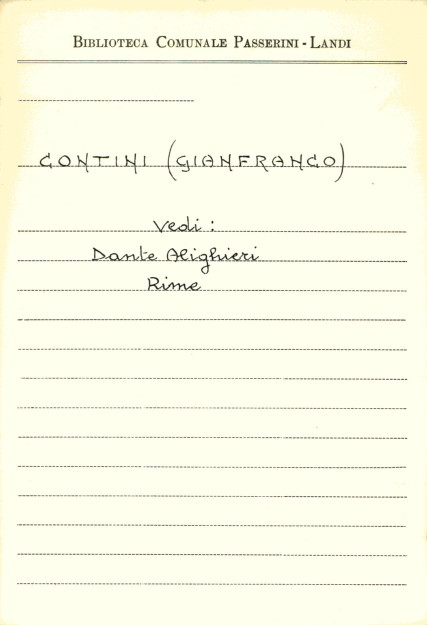 BIBLIOTECA COMUNALE PASSERINI - LANDI
CONTINI (GIANFRANCO)
Vedi :
Dante Alighieri
Rime